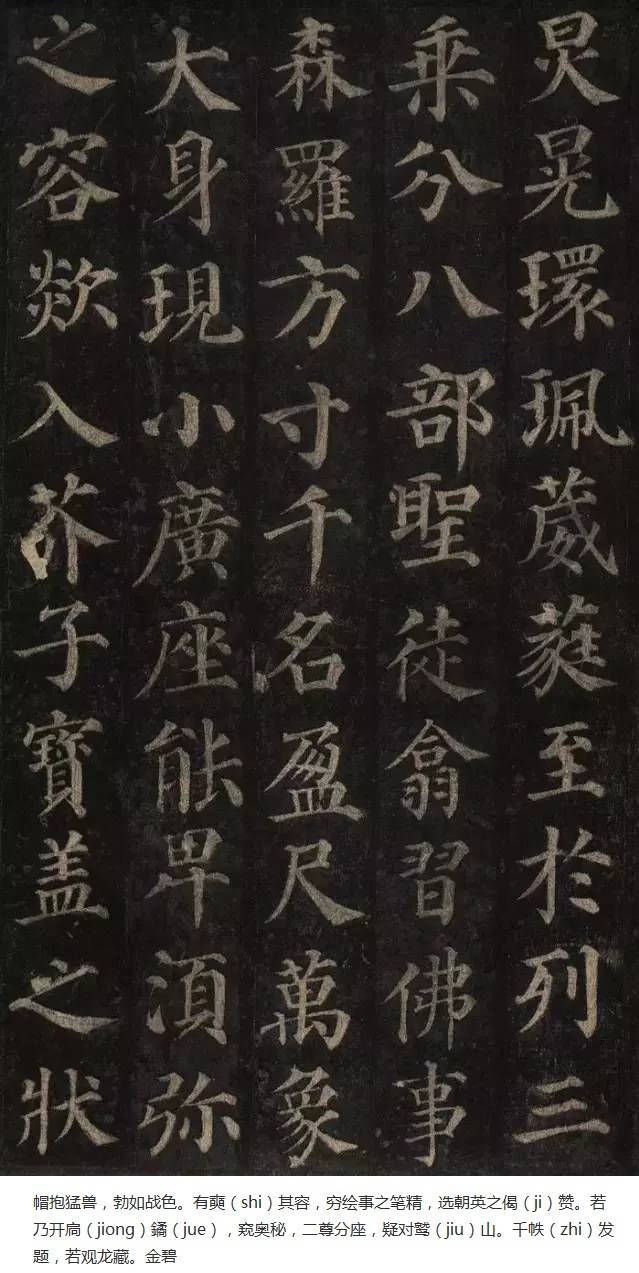 炅晃環珮葳蕤至於列三
乘分八部聖徒翕習佛事
森羅方寸千名盈尺萬象
大身現小廣座能卑湏弥
之容欻入芥子寶盖之状
帽抱猛兽，勃如战色。有奭（shi）其容，穷绘事之笔精，选朝英之偈（ji）赞。若
乃开扃（jiong）鐍（jue），窥奥秘，二尊分座，疑对鹫（jiu）山。千帙（zhi）发
题，若观龙藏。金碧